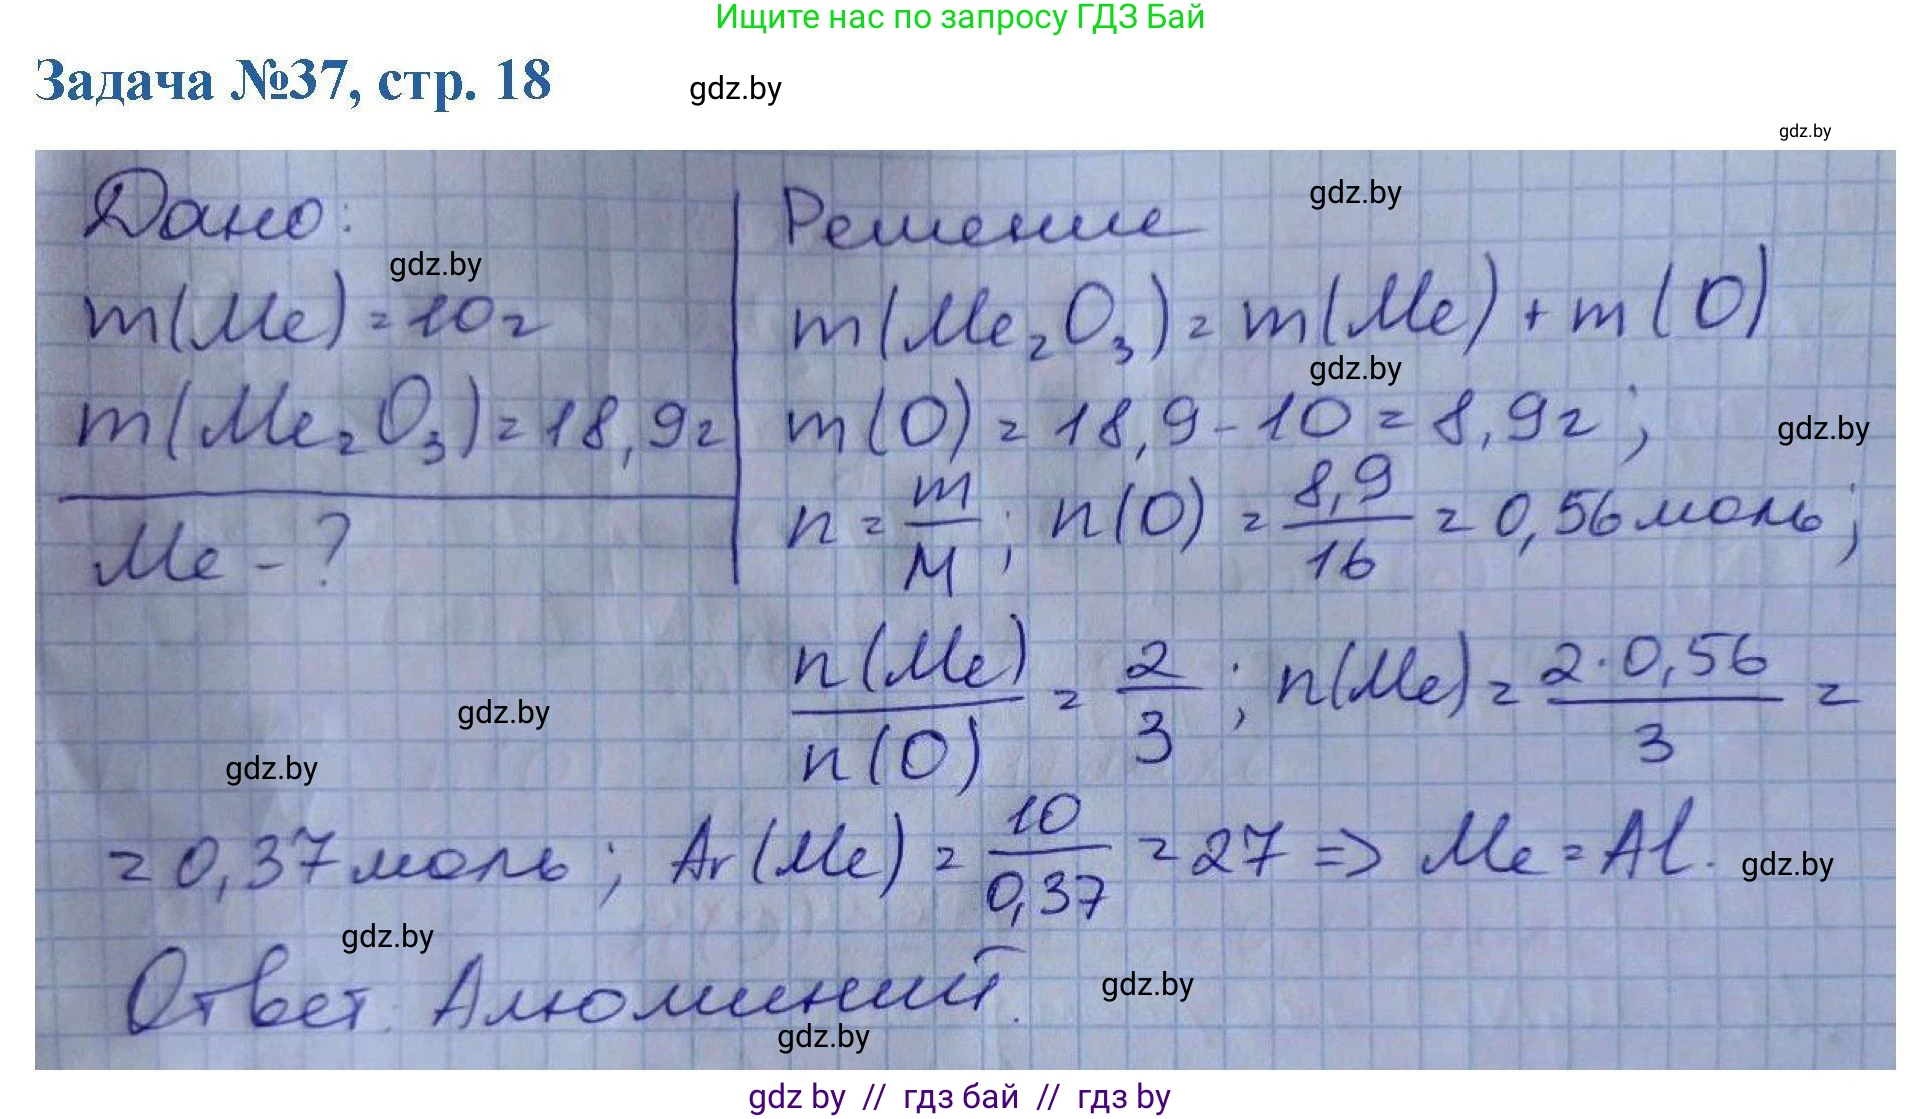 Ищите нас по запросу ГДЗ Бай
Задача №37, стр. 18
gdz.by
gdz.by
Дано:
Решение
gdz.by
gdz.by
m(Me) = 10г
m(Me₂O₃) = m(Me) + m(O)
gdz.by
m(Me₂O₃) = 18,9г
m(O) = 18,9 - 10 = 8,9г;
gdz.by
Me - ?
n = m/M; n(O) = 8,9/16 = 0,56 моль;
n(Me)/n(O) = 2/3; n(Me) = 2·0,56/3 =
gdz.by
gdz.by
= 0,37 моль; Ar(Me) = 10/0,37 = 27 => Me = Al.
gdz.by
gdz.by
Ответ: Алюминий.
gdz.by
gdz.by
gdz by // гдз бай // гдз by